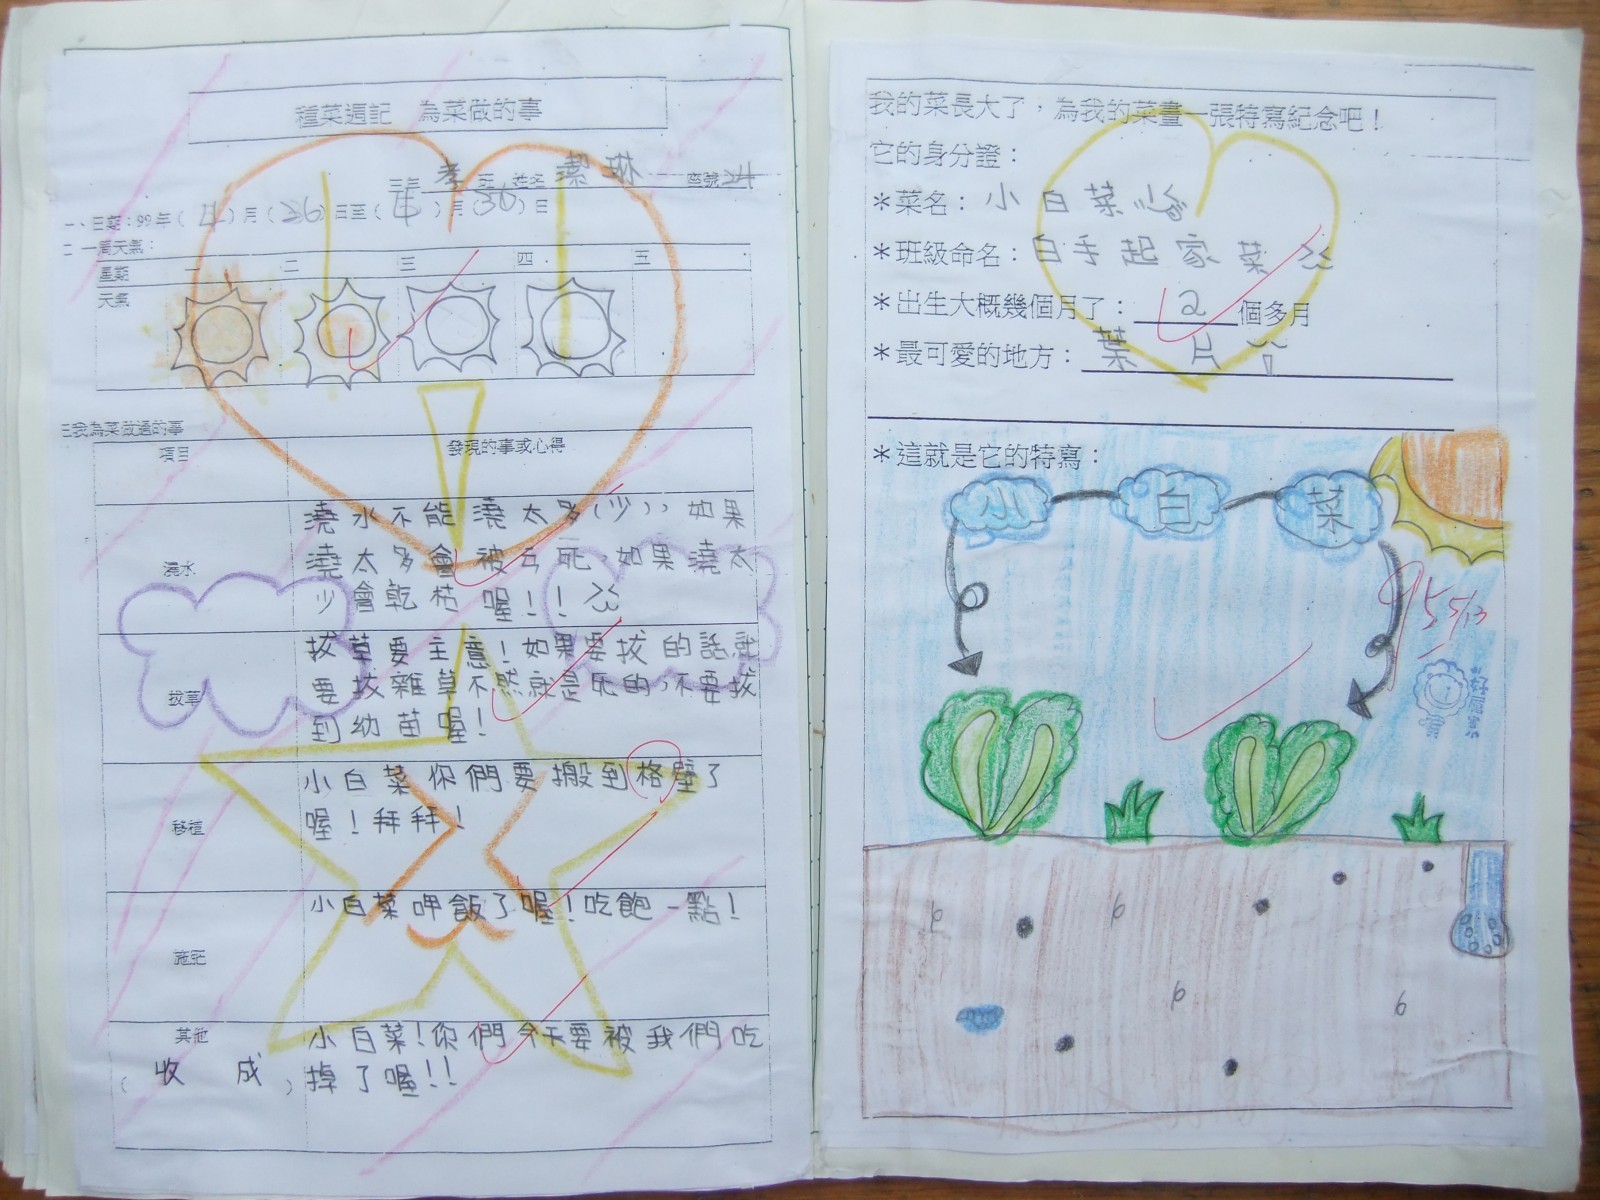 種菜週記 為菜做的事
三年孝班 姓名 潔琳 座號
一、日期：99年(4)月(26)日至(4)月(30)日
二 一周天氣：
星期 一 二 三 四 五
天氣
三我為菜做過的事
項目 發現的事或心得
澆水
澆水不能澆太多(少)，如果
澆太多會被ㄢ死，如果澆太
少會乾枯喔！！
拔草
拔草要主意！如果要拔的話就
要拔雜草不然就是死的，不要拔
到幼苗喔！
移植
小白菜你們要搬到格壁了
喔！拜拜！
施肥
小白菜呷飯了喔！吃飽一點！
其他
(收成)
小白菜！你們今天要被我們吃
掉了喔！！
我的菜長大了，為我的菜畫一張特寫紀念吧！
它的身分證：
＊菜名：小白菜
＊班級命名：白手起家菜
＊出生大概幾個月了：2個多月
＊最可愛的地方：葉片
＊這就是它的特寫：
小白菜
95 5/13